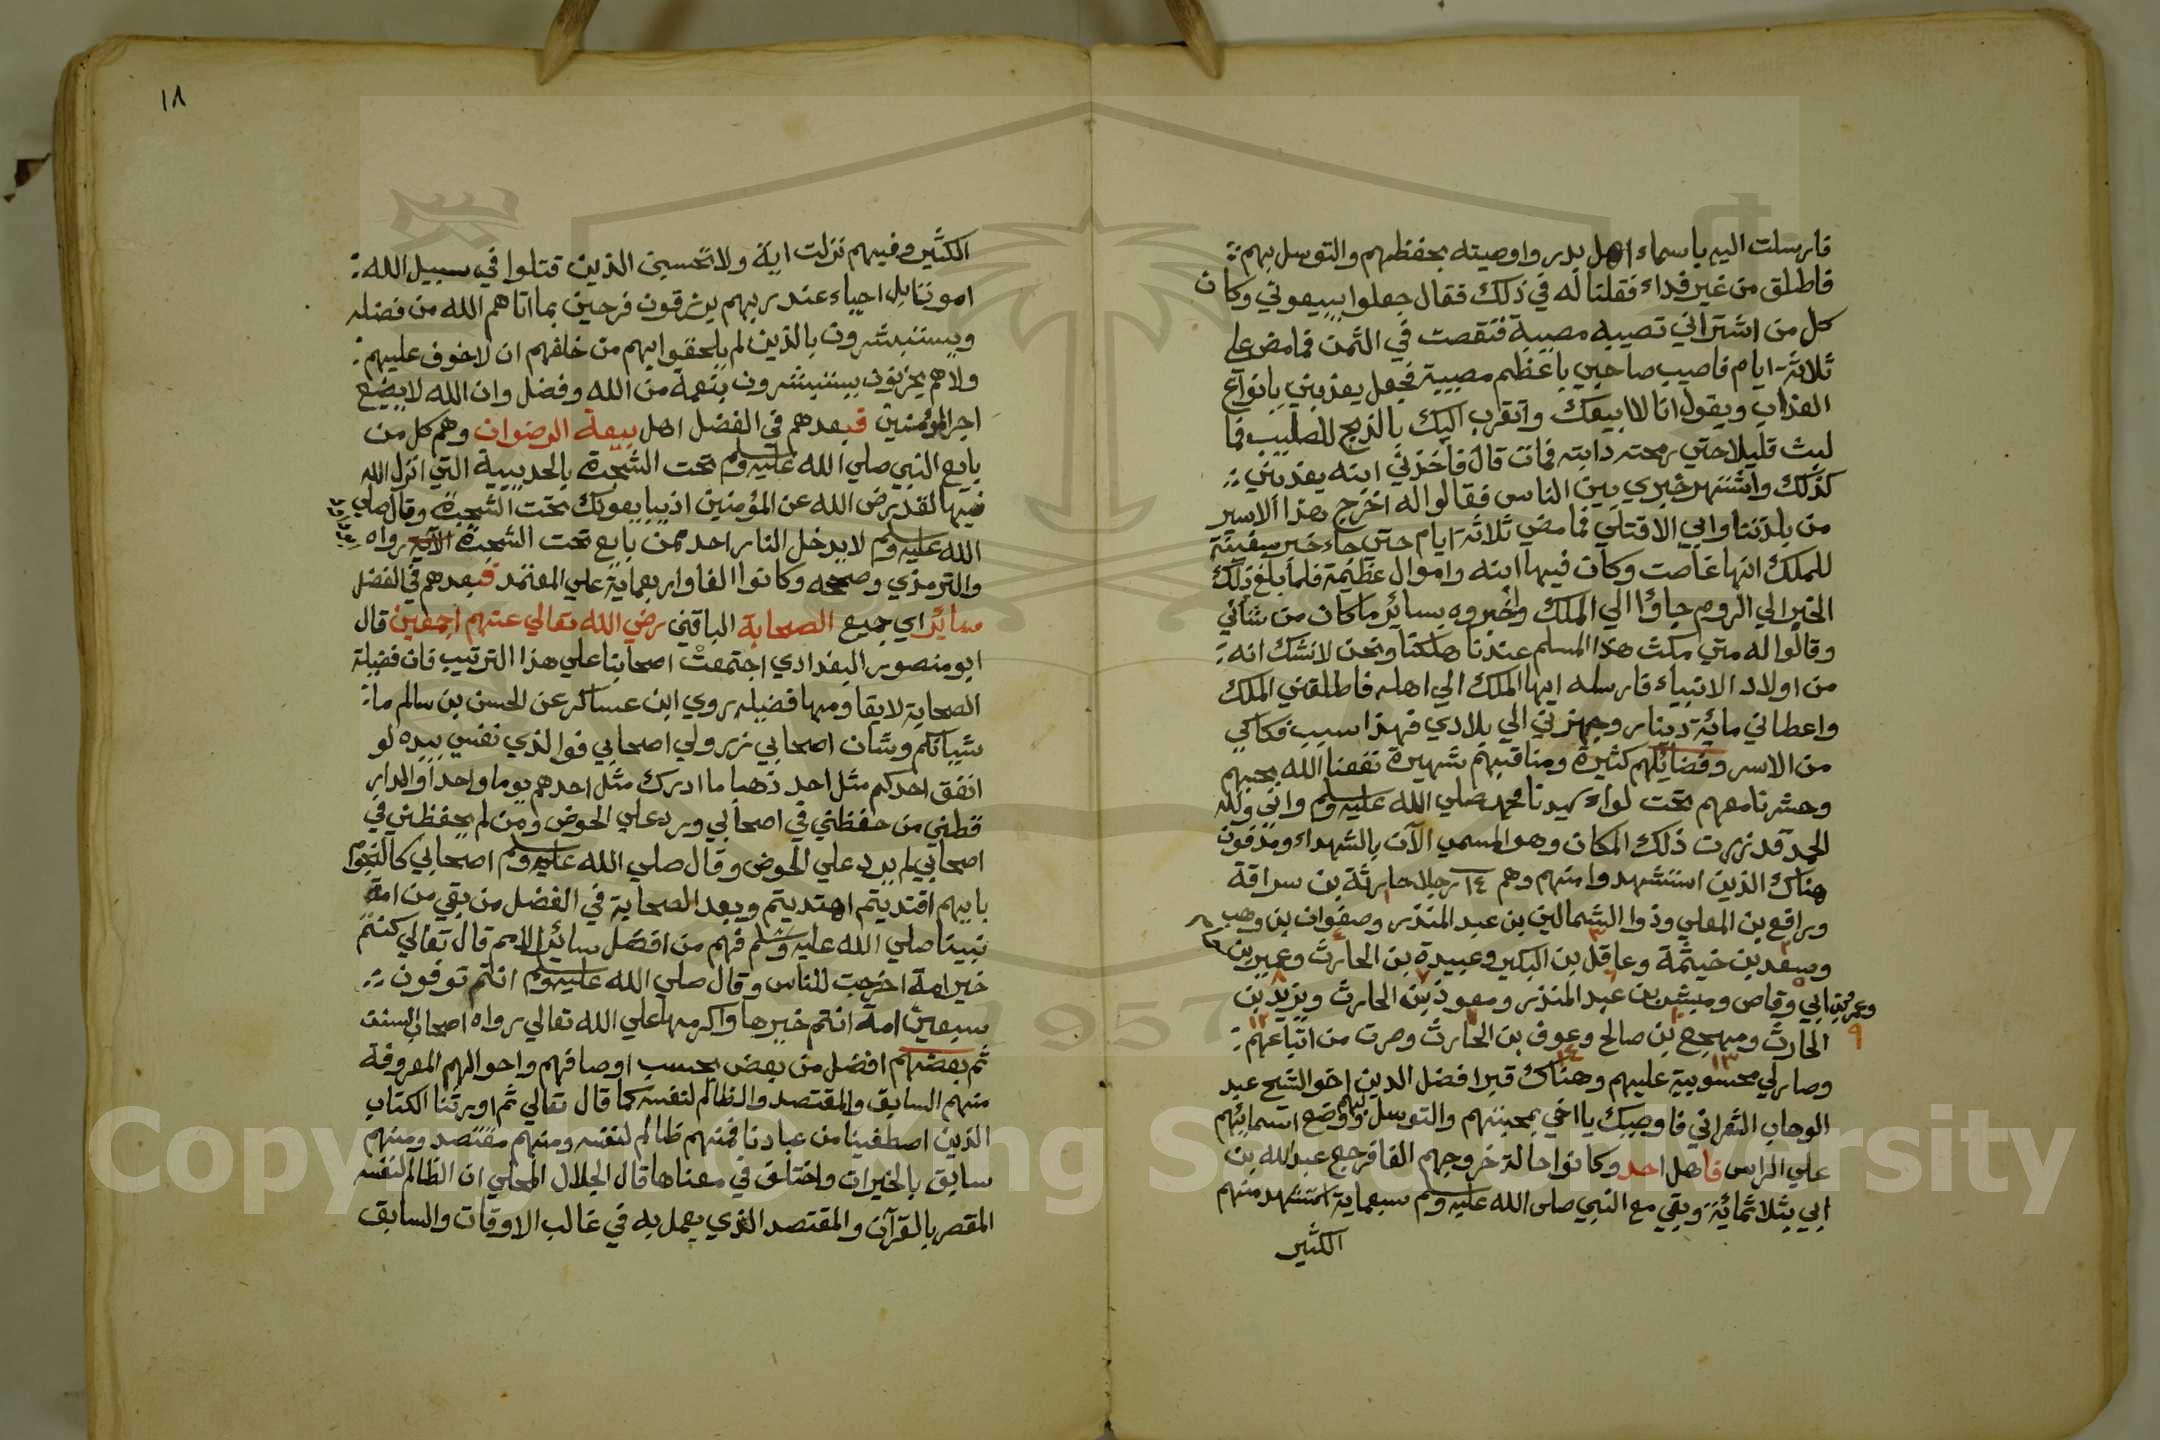 فارسلت اليه باسماء اهل بدر واوصيته بحفظهم والتوسل بهم
فاطلق من غير فداء فقلنا له في ذلك فقال جعلوا يبيعوني وكان
كل من اشتراني تصيبه مصيبة فنقصت في الثمن فما مضى علي
ثلاثة ايام فاصيب صاحبي باعظم مصيبة فجعل يعذبني بانواع
العذاب ويقول انا لا ابيعك واتقرب اليك بالذبح للصليب فما
لبث قليلا حتي رمحته دابته فمات قال فاخذني ابنه يعذبني
كذلك واشتهر خبري بين الناس فقالوا له اخرج هذا الاسير
من بلدتنا وابي الا قتلي فما مضي ثلاثة ايام حتي جاء خبر سفينة
للملك انها غاصت وكان فيها ابنه واموال عظيمة فلما بلغ ذلك
الخبر الي الروم جاؤا الي الملك واخبروه بسائر ما كان من شاني
وقالوا له متي مكث هذا المسلم عندنا هلكنا ونحن لا نشك انه
من اولاد الانبياء فارسله ايها الملك الي اهله فاطلقني الملك
واعطاني مائة دينار وجهزني الي بلادي فهذا سبب فكاكي
من الاسر وفضائلهم كثيرة ومناقبهم شهيرة نفعنا الله بحبهم
وحشرنا معهم تحت لواء سيدنا محمد صلي الله عليه وسلم واني ولله
الحمد قد زرت ذلك المكان وهو المسمي الآن بالشهداء ومدفون
هناك الذين استشهدوا منهم وهم ١٤ رجلا حارثة بن سراقة
ورافع بن المعلي وذوا الشمالين بن عبد المنذر وصفوان بن وهب
وسعد بن خيثمة وعاقل بن البكير وعبيدة بن الحارث وعمير بن
وعمر بن ابي وقاص ومبشر بن عبد المنذر ومعوذ بن الحارث ويزيد بن
الحارث ومهجع بن صالح وعوف بن الحارث وصرت من اتباعهم
وصار لي محسوبية عليهم وهناك قبر افضل الدين اخو الشيخ عبد
الوهاب الشعراني فاوصيك يا اخي بمحبتهم والتوسل بهم ووضع اسمائهم
علي الراس فاهل احد وكانوا حالة خروجهم الفا فرجع عبد الله بن
ابي بثلاثمائة وبقي مع النبي صلي الله عليه وسلم سبعماية استشهد منهم
الكثير
١٨
الكثير وفيهم نزلت اية ولا تحسبن الذين قتلوا في سبيل الله
امواتا بل احياء عند ربهم يرزقون فرحين بما اتاهم الله من فضله
ويستبشرون بالذين لم يلحقوا بهم من خلفهم ان لا خوف عليهم
ولا هم يحزنون يستبشرون بنعمة من الله وفضل وان الله لا يضيع
اجر المؤمنين فبعدهم في الفضل اهل بيعة الرضوان وهم كل من
بايع النبي صلي الله عليه وسلم تحت الشجرة بالحديبية التي انزل الله
فيها لقد رض الله عن المؤمنين اذ يبايعونك تحت الشجرة وقال صلي
الله عليه وسلم لا يدخل النار احد ممن بايع تحت الشجرة رواه
والترمذي وصححه وكانوا الفا واربعماية علي المعتمد فبعدهم في الفضل
سائر اي جميع الصحابة الباقين رضي الله تعالي عنهم اجمعين قال
ابو منصور البغدادي اجتمعت اصحابنا علي هذا الترتيب فان فضيلة
الصحابة لا يقاومها فضيلة روي ابن عساكر عن الحسن بن سالم ما
شيانكم وشان اصحابي زرولي اصحابي فوالذي نفسي بيده لو
انفق احدكم مثل احد ذهبا ما ادرك مثل احدهم يوما واحدا والدار
قطني من حفظني في اصحابي ورد علي الحوض ومن لم يحفظني في
اصحابي لم يرد علي الحوض وقال صلي الله عليه وسلم اصحابي كالنجوم
بايهم اقتديتم اهتديتم وبعد الصحابة في الفضل من بقي من امة
نبينا صلي الله عليه وسلم فهم من افضل سائر الامم قال تعالي كنتم
خير امة اخرجت للناس وقال صلي الله عليه وسلم انتم توفون
سبعين امة انتم خيرها واكرمها علي الله تعالي رواه اصحاب السنن
ثم بعضهم افضل من بعض بحسب اوصافهم واحوالهم المعروفة
منهم السابق والمقتصد والظالم لنفسه كما قال تعالي ثم اورثنا الكتاب
الذين اصطفينا من عبادنا فمنهم ظالم لنفسه ومنهم مقتصد ومنهم
سابق بالخيرات واختلف في معناها قال الجلال المحلي ان الظالم لنفسه
المقصر بالقرآن والمقتصد الذي يعمل به في غالب الاوقات والسابق
1957
Copyright © King Saud University